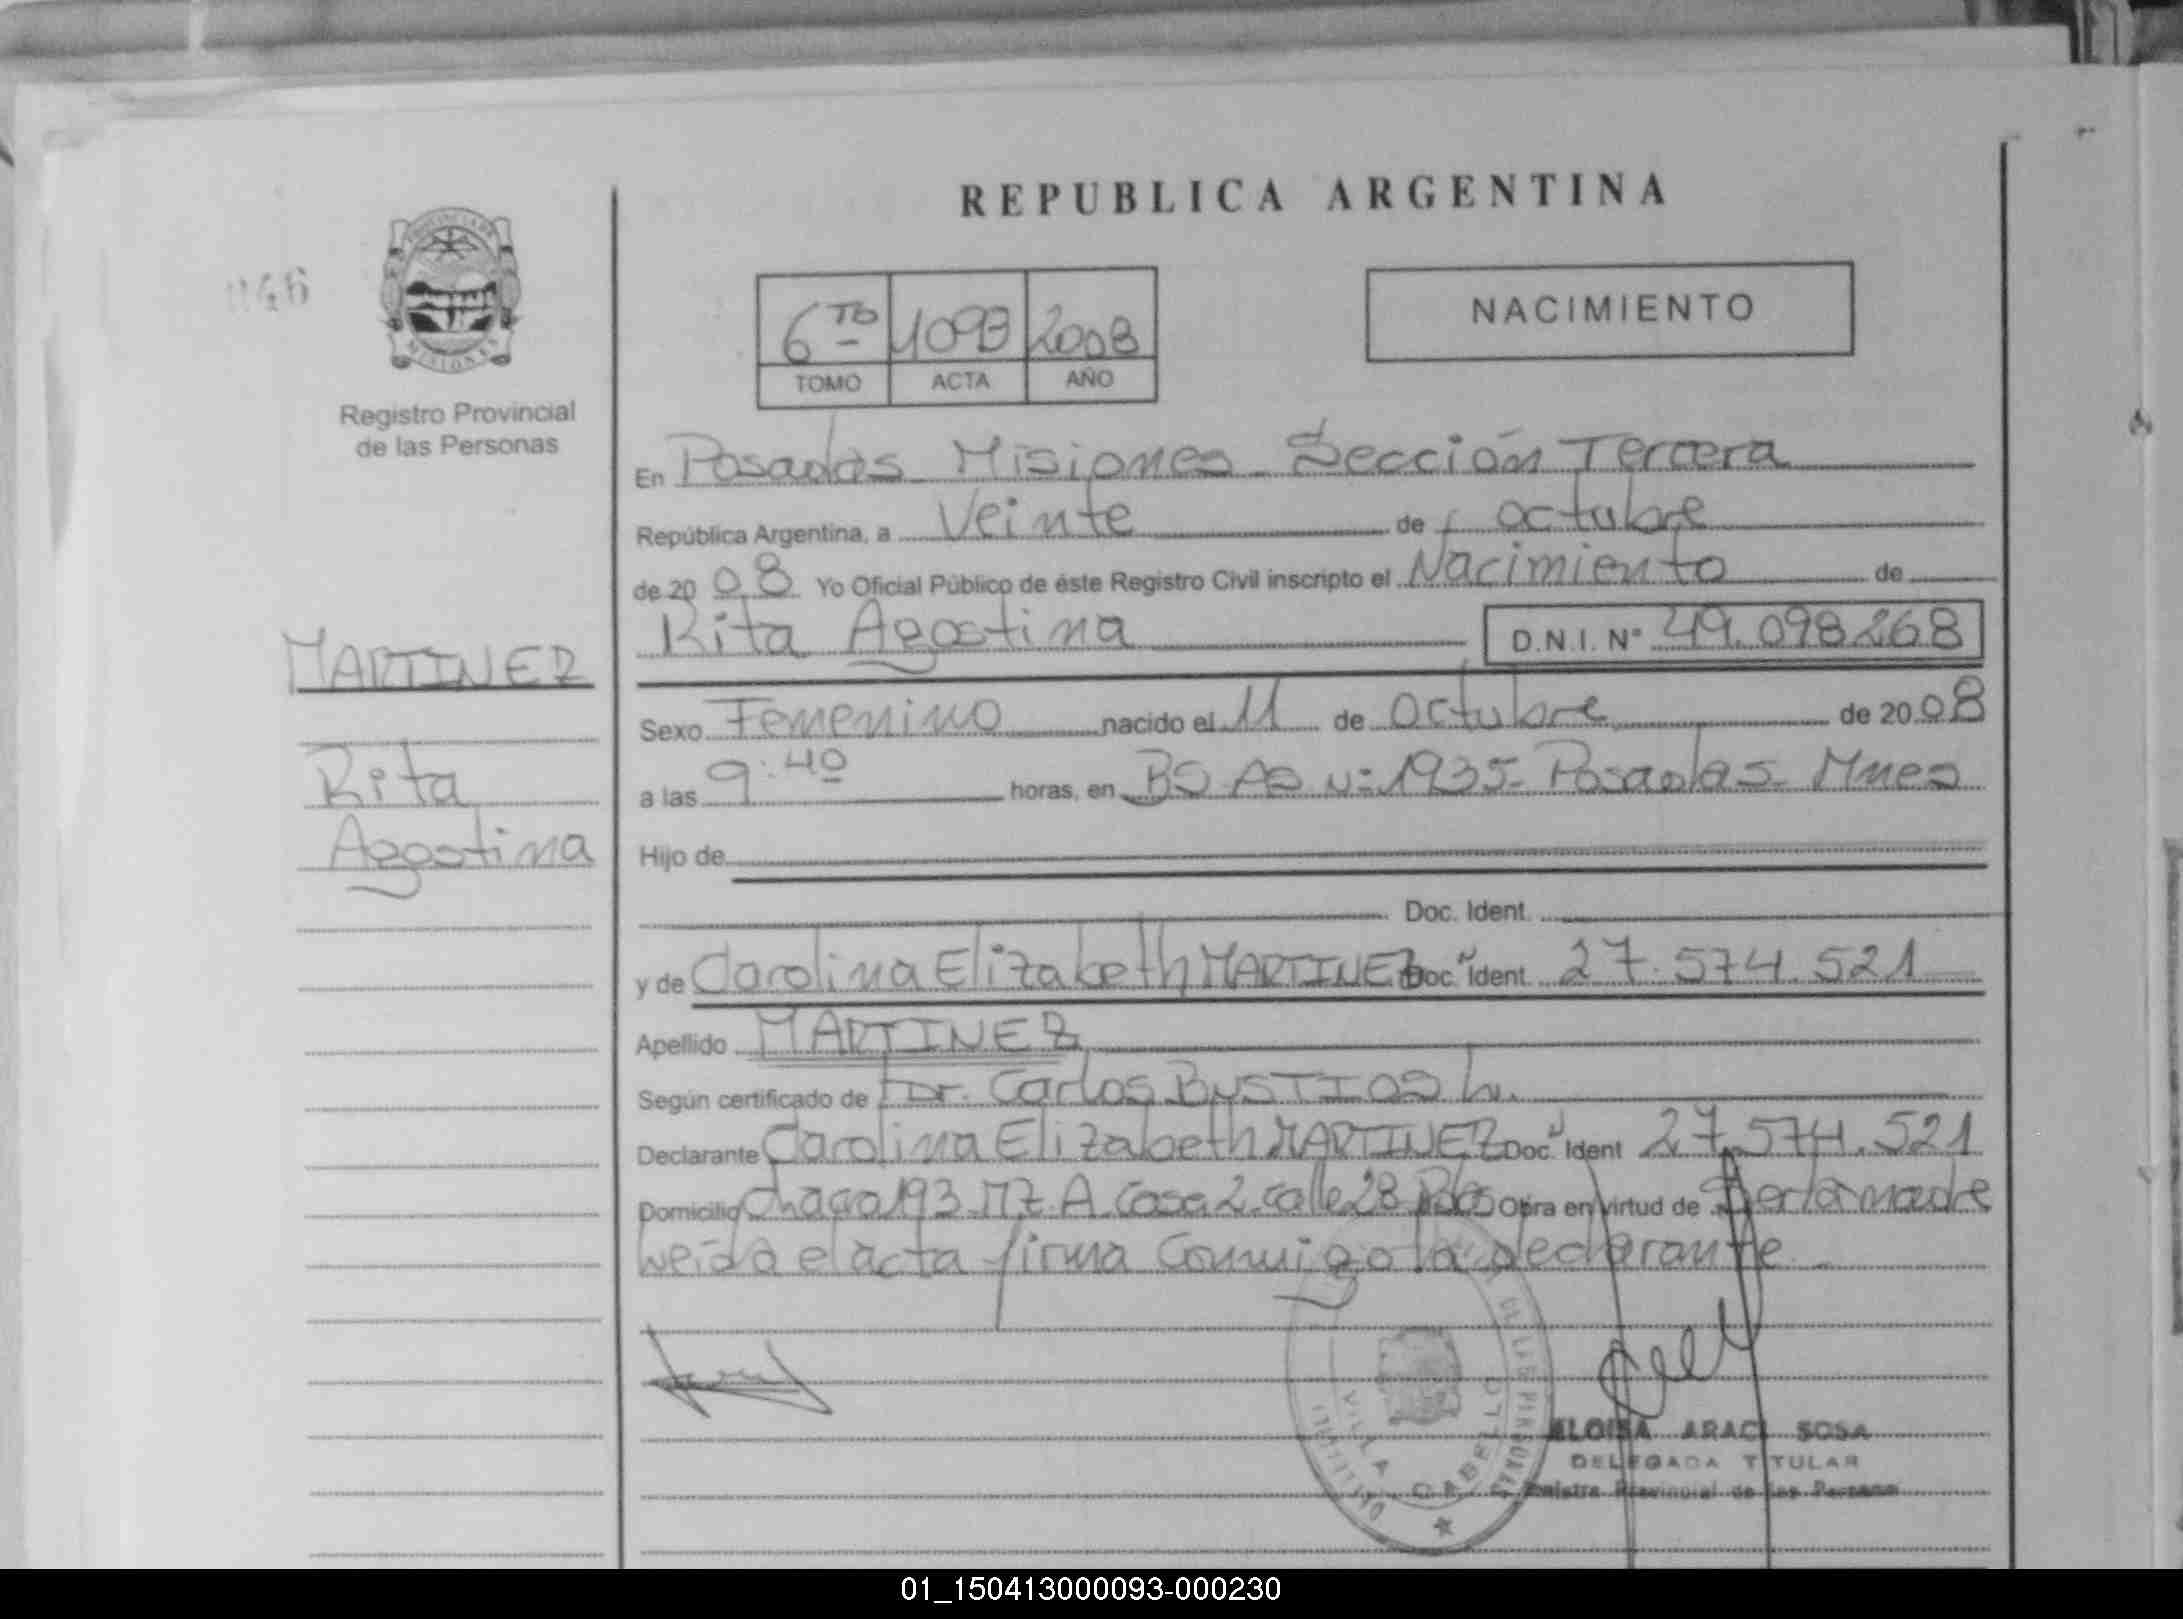 REPUBLICA ARGENTINA
046
PROVINCIA DE
MISIONES
Registro Provincial
de las Personas
6TO 1093 2008
TOMO ACTA AÑO
NACIMIENTO
En Posadas Misiones Sección Tercera
República Argentina, a Veinte de octubre
de 20 08 Yo Oficial Público de éste Registro Civil inscripto el Nacimiento de
Rita Agostina D.N.I. Nº 49.098.268
MARTINEZ
Rita
Agostina
Sexo Femenino nacido el 11 de Octubre de 20 08
a las 9:40 horas, en BS AS Nº 1935- Posadas- Mnes
Hijo de
Doc. Ident.
y de Carolina Elizabeth MARTINEZ Doc. Ident. 27.574.521
Apellido MARTINEZ
Según certificado de Dr. Carlos BUSTIOS
Declarante Carolina Elizabeth MARTINEZ Doc. Ident 27.574.521
Domicilio 193 Mz. A Casa 2 calle 28 Pdas Obra en virtud de Ser la madre
Leída el acta firma Conmigo la declarante
DE LAS PERSONAS
VILLA CABELLO
ELOISA ARACI SOSA
DELEGADA TITULAR
Registro Provincial de las Personas
01_150413000093-000230